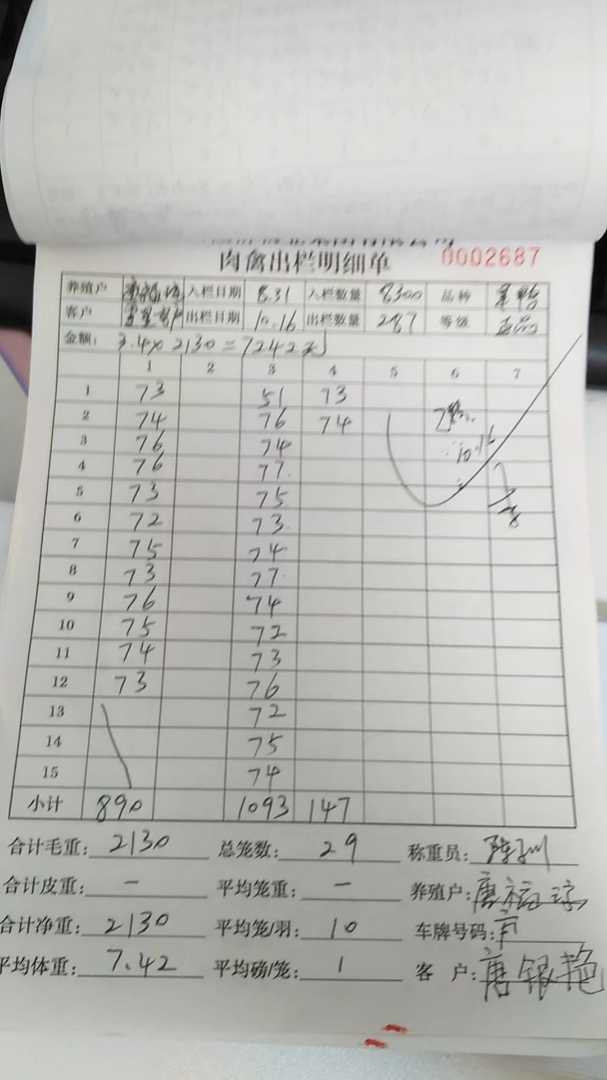 肉禽出栏明细单 0002687
养殖户 入栏日期 8.31 入栏数量 8300 品种
客户 出栏日期 10.16 出栏数量 287 等级 正品
金额: 3.4×2130=7242元
1 2 3 4 5 6 7
1 73 51 73
2 74 76 74
3 76 74
4 76 77 10.16
5 73 75
6 72 73
7 75 74
8 73 77
9 76 74
10 75 72
11 74 73
12 73 76
13 72
14 75
15 74
小计 890 1093 147
合计毛重: 2130 总笼数: 29 称重员:
合计皮重: — 平均笼重: — 养殖户: 唐福琼
合计净重: 2130 平均笼/羽: 10 车牌号码:
平均体重: 7.42 平均磅/笼: 1 客 户: 唐银艳